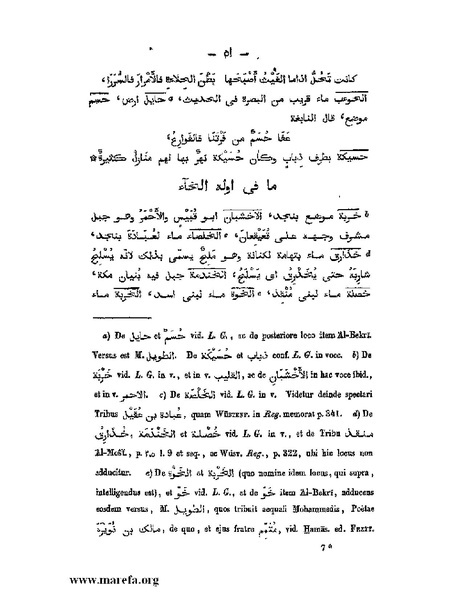 — ٥١ —
كانت تحلّ اذاما الغيث أصبحها بطن الحلاءة فالأمرار فالسررا،
الحوءب ماء قريب من البصرة فى الحديث، حايل ارض، حسم
موضع، قال النابغة
عفا حسم من فرتنا فالفوارع،
حسيكة بطرف ذباب وكان حسيكة نهر بها لهم منازل كثيرة
ما فى اوله الخآء
خربة موضع بنجد، الأخشبان ابو قبيس والأحمر وهو جبل
مشرف وجهه على قعيقعان، الخلصاء ماء لعبادة بنجد،
خذارق ماء بتهامة لكنانة وهو ملح يسمى بذلك لانه يسلح
شاربه حتى يخذرق اى يسلح، الخندمة جبل فيه بنيان مكة،
خصلة ماء لبنى منقذ، الخوة ماء لبنى اسد، الخربة ماء
a) De حايل et حسم vid. L. G., ac de posteriore loco item Al-Bekrí.
Versus est M. الطويل. De ذباب et حسيكة conf. L. G. in vocc. b) De
خربة vid. L. G. in v., et in v. القليب, ac de الأخشبان in hac voce ibid.,
et in v. الاحمر. c) De الخلصة vid. L. G. in v. Videtur deinde spectari
Tribus عبادة بن عقيل, quam Wüstenf. in Reg. memorat p. 341. d) De
خذارق, الخندمة et خصلة vid. L. G. in v., et de Tribu منقذ
Al-Mošt., p. ٢٥ l. 9 et seq., ac Wüst. Reg., p. 322, ubi hic locus non
adducitur. e) De الخوة et الخربة (quo nomine idem locus, qui supra,
intelligendus est), et خو vid. L. G., et de خو item Al-Bekrí, adducens
eosdem versus, M. الطويل, quos tribuit aequali Mohammedis, Poëtae
مالك بن نويرة, de quo, et ejus fratre متمم, vid. Hamâs. ed. Freyt.
7*
www.marefa.org